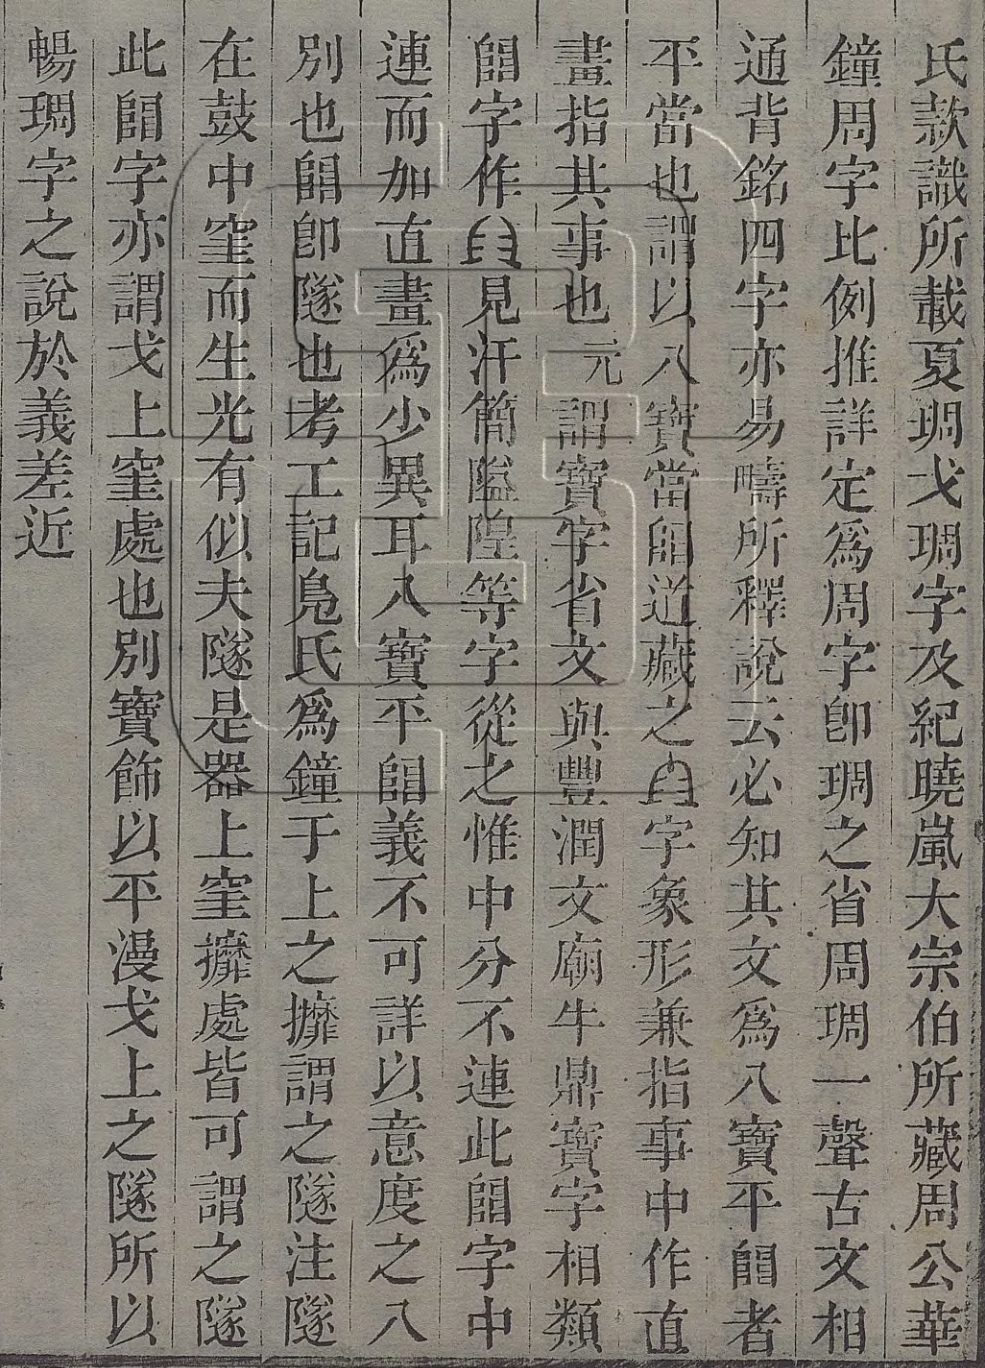 氏款識所載夏琱戈琱字及紀曉嵐大宗伯所藏周公華
鐘周字比例推詳定爲周字卽琱之省周琱一聲古文相
通背銘四字亦易疇所釋說云必知其文爲八寶平𨺅者
平當也謂以八寶當𨺅道藏之𨸏字象形兼指事中作直
畫指其事也元謂寶字省文與豐潤文廟牛鼎寶字相類
𨺅字作𨸏見汗簡隘隍等字從之惟中分不連此𨺅字中
連而加直畫爲少異耳八寶平𨺅義不可詳以意度之八
別也𨺅卽隧也考工記鳧氏爲鐘于上之攠謂之隧注隧
在鼓中窒而生光有似夫隧是器上窒攠處皆可謂之隧
此𨺅字亦謂戈上窒處也別寶飾以平漫戈上之隧所以
暢琱字之說於義差近